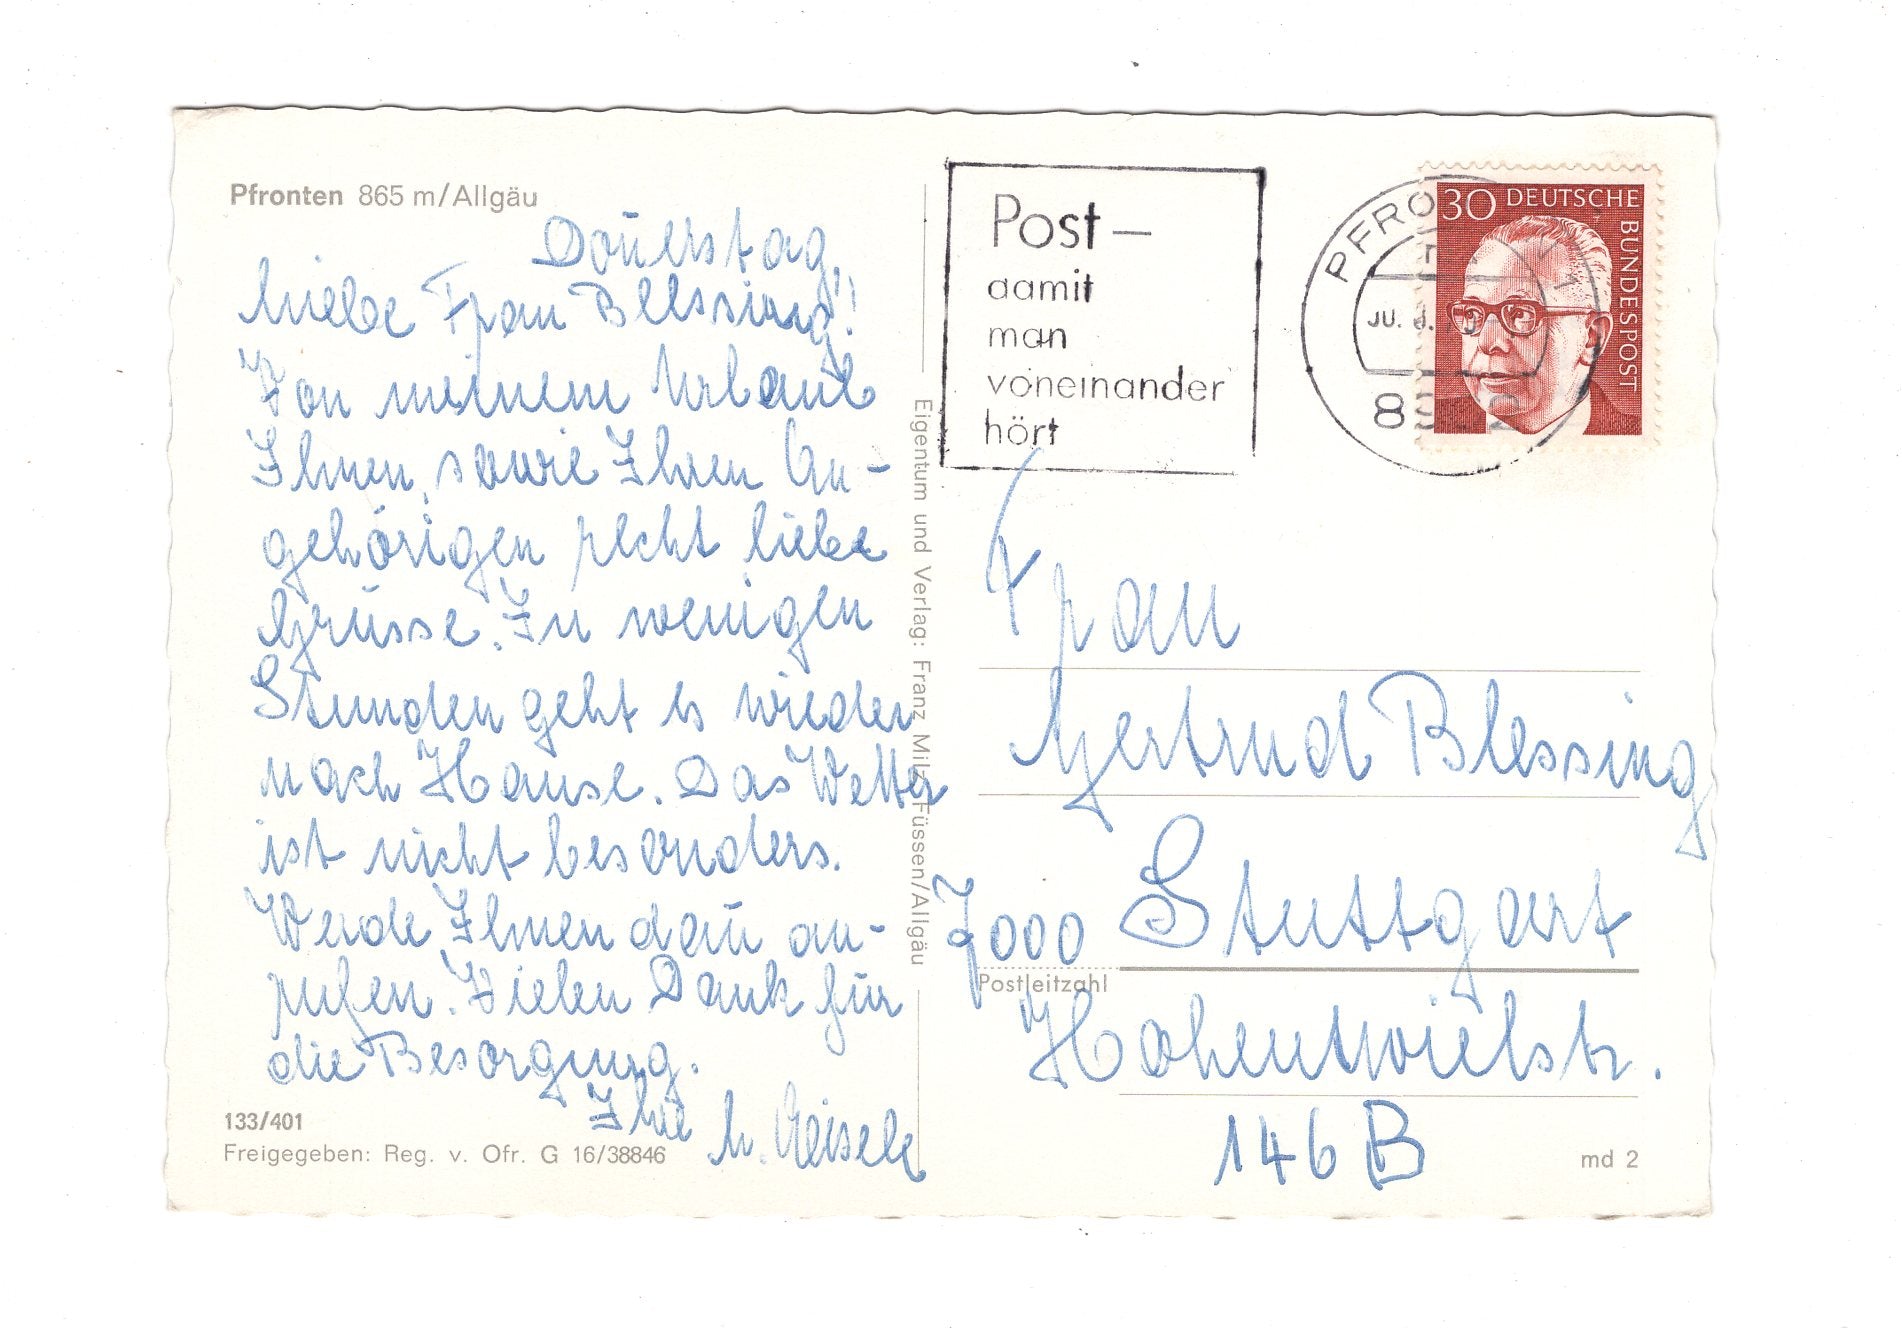 Pfronten 865 m/Allgäu
Donnerstag,
Liebe Frau Blessing!!
Von meinem Urlaub
Ihnen, sowie Ihren An-
gehörigen recht liebe
Grüsse. In wenigen
Stunden geht es wieder
nach Hause. Das Wetter
ist nicht besonders.
Werde Ihnen dañ an-
rufen. Vielen Dank für
die Besorgung.
Ihre
133/401
Freigegeben: Reg. v. Ofr. G 16/38846
Eigentum und Verlag: Franz Milz, Füssen/Allgäu
Post –
damit
man
voneinander
hört
PFRO
30 DEUTSCHE BUNDESPOST
Frau
Gertrud Blessing
7000 Stuttgart
Postleitzahl
Hohentwielstr.
146 B
md 2